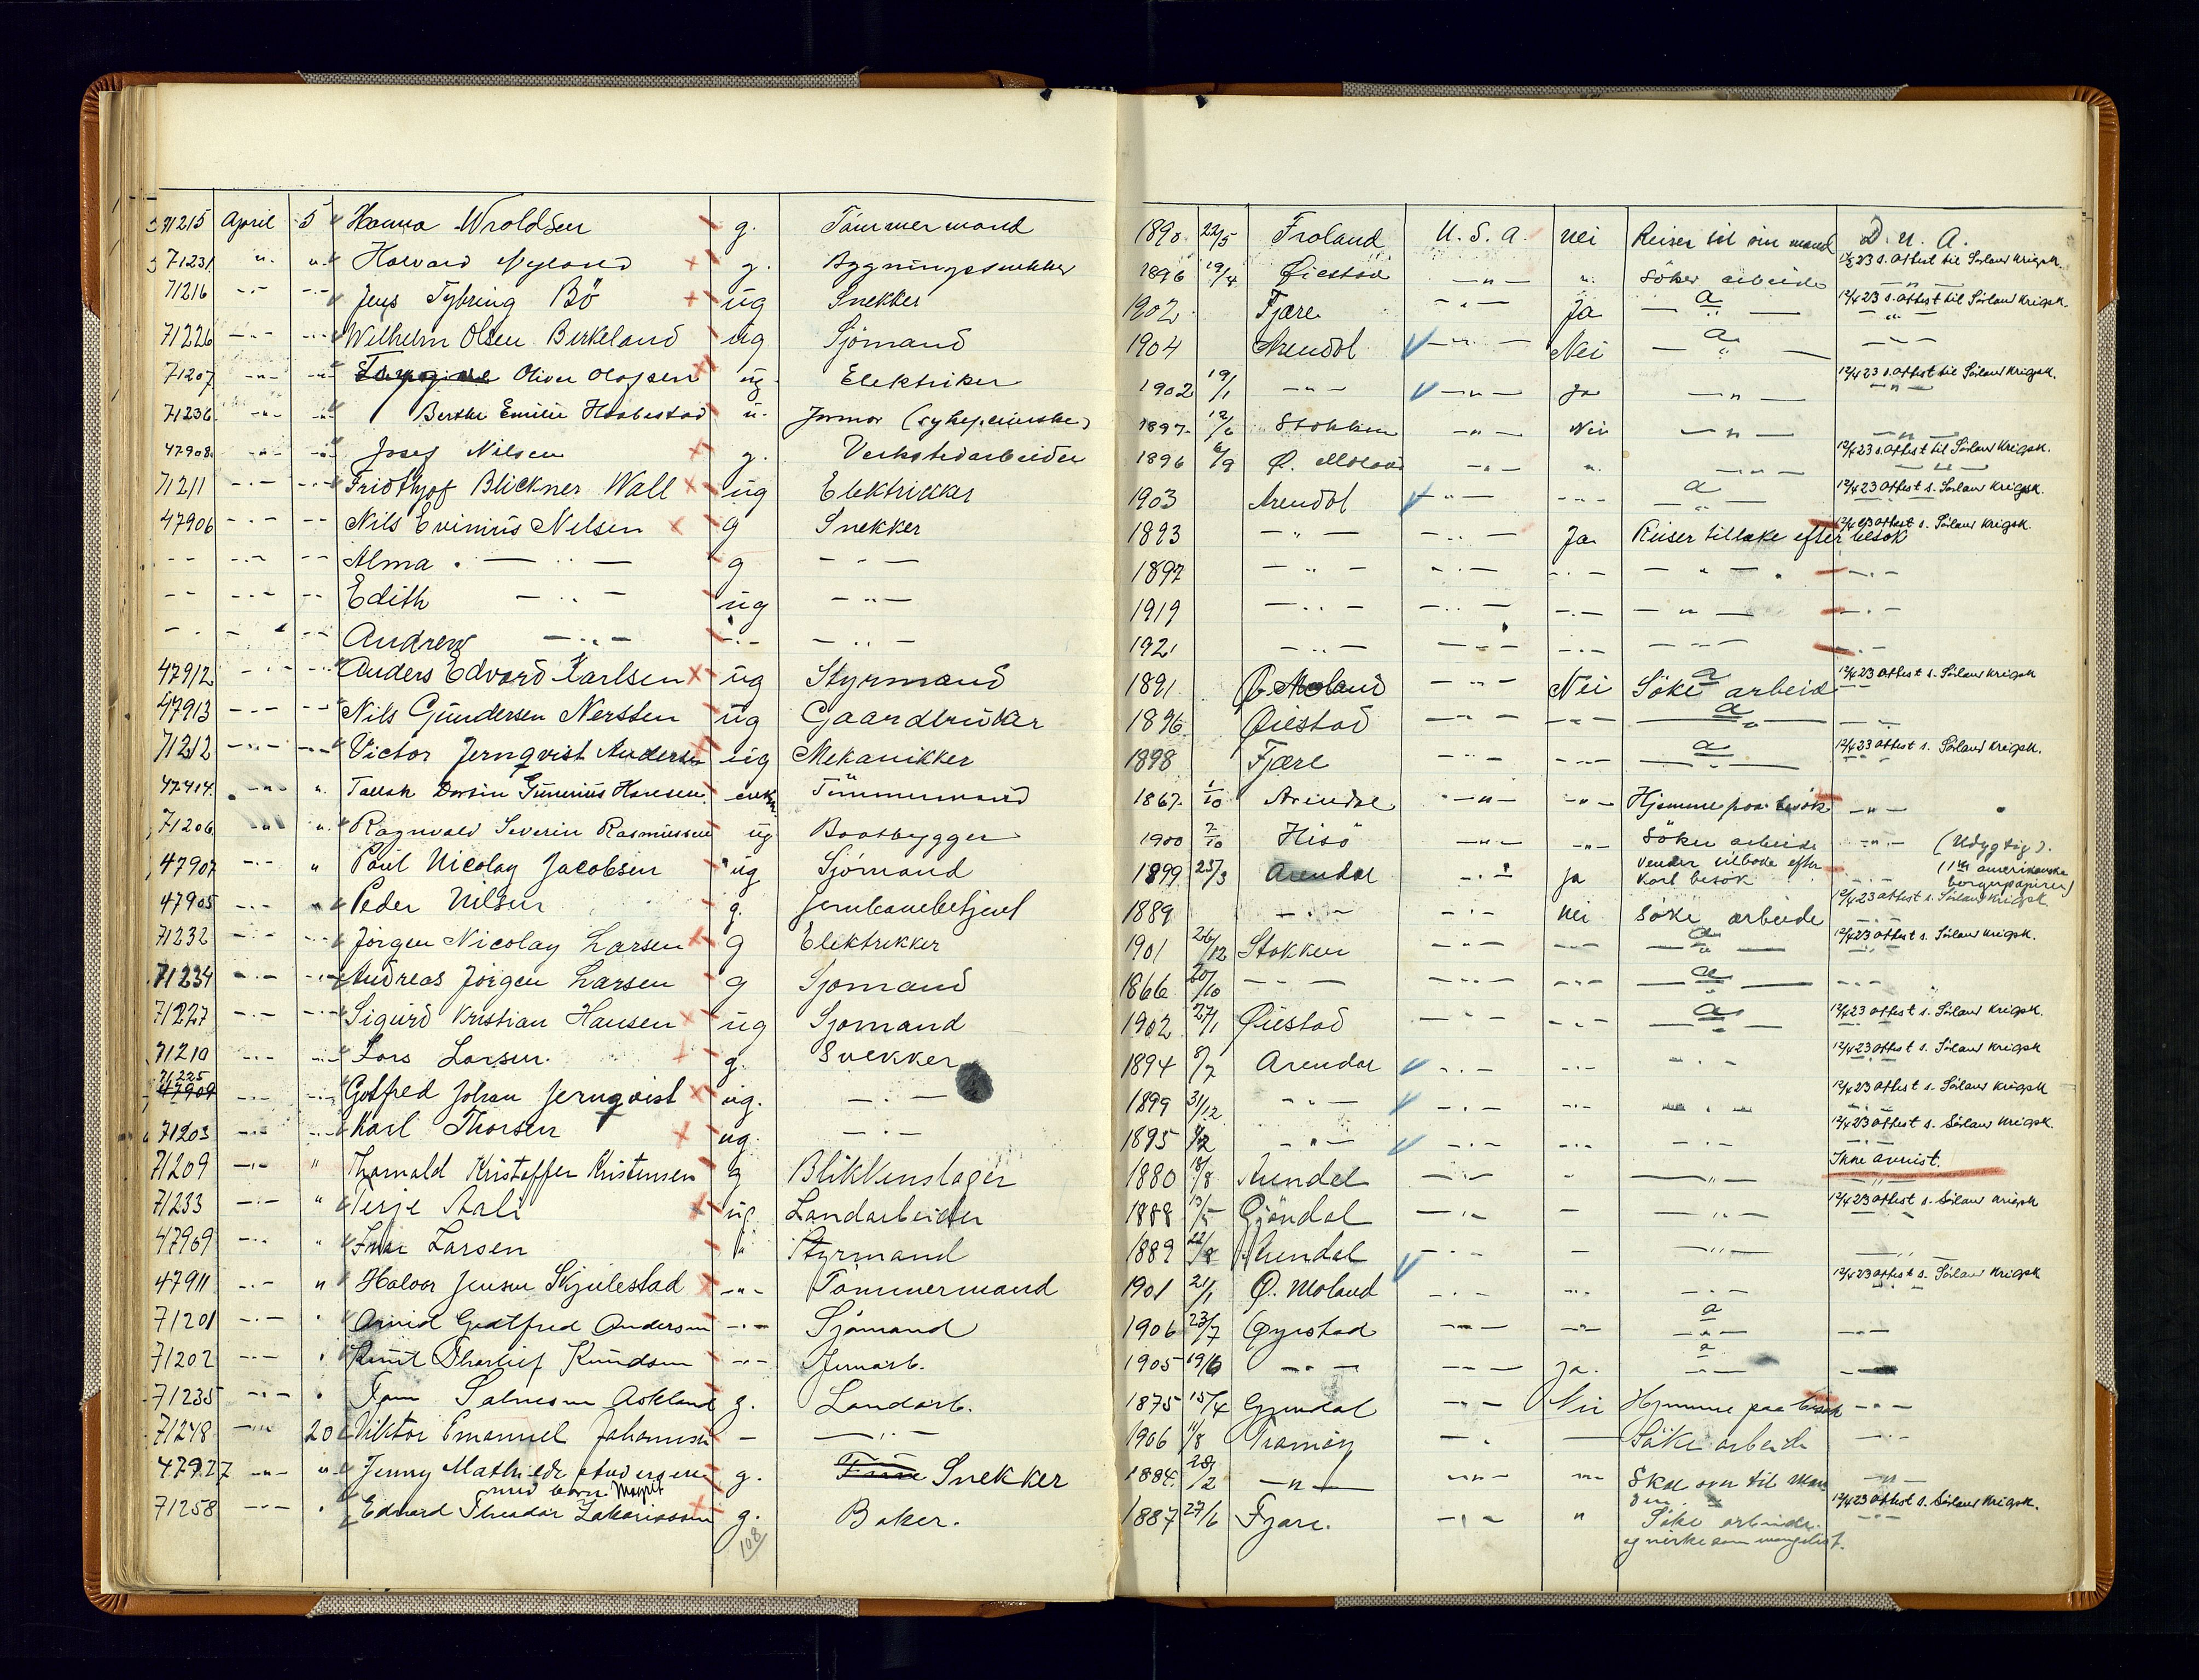 71215 April 5 Hanna Wroldsen g. Tömmermand 1890. 22/5 Froland U.S.A. nei Reiser til sin mand D.N.A.
71231 " " Halvard Nyland g. Bygningssnekker 1896 19/4 Öiestad —"— " söker arbeide 12/4 23 s. attest til Sörland Krigsk. —"—
71216 —"— —"— Jens Tybring Bö ug Snekker 1902 Fjære —"— Ja — a — 12/4 23 s. attest til Sörland Krigsk. —"—
71226 —"— —"— Wilhelm Olsen Birkeland ug Sjömand 1904 Arendal —"— Nei — a — —"—
71207 —"— —"— Oliver Olafsen ug. Elektriker 1902 19/1 —"— —"— ja —"— 12/4 23 s. attest til Sörland Krigsk. —"—
71236 —"— —"— Berthe Emilie u. 1897. Stokken —"— Nei —"— —"—
47908 —"— —"— Josef Nilsen g. Verkstedarbeider 1896 6/9 Ö. Moland —"— " —"— 12/4 23 s. attest til Sörland Krigsk. —"—
71211 —"— —"— Fridthjof Blickner Wall ug Elektrikker 1903 Arendal —"— —"— a 12/4 23 attest s. Sörland Krigsk.
47906 —"— —"— Nils Evinius Nelsen g Snekker 1893 —"— —"— Ja Reiser tilbake efter besök 12/4 23 attest s. Sörland Krigsk.
—"— —"— —"— Alma —"— g —"— 1897 —"— —"— —"— —"— —"—
—"— —"— —"— Edith —"— ug —"— 1919 —"— —"— —"— —"— —"—
—"— —"— —"— Andrew —"— —"— —"— 1921 —"— —"— —"— —"— —"—
47912 —"— —"— Anders Edvard Karlsen ug Styrmand 1891 Ö. Moland —"— Nei Söke arbeid a 12/4 23 attest s. Sörland Krigsk
47913 —"— —"— Nils Gundersen Nersten ug Gaardbruker 1896 Öiestad —"— —"— a —"— —"—
71212 —"— —"— Victor Jernqvist Andersen ug Mekanikker 1898 Fjære —"— —"— a —"— 12/4 23 attest s. Sörland Krigsk.
47914. —"— " Gunerius Hansen. enkm. Tömmermand 1867. 1/10 Arendal —"— —"— Hjemme paa besök —"—
71206 —"— " Ragnvald Severin Rasmussen ug Baatbygger 1900 2/10 Hisö —"— —"— Söker arbeide —"— (Udygtig).
47907 —"— " Paul Nicolay Jacobsen ug Sjömand 1899 23/3 Arendal —"— ja Vender tilbake efter kort besök —"— amerikanske borgerpapirer)
47905 —"— " Peder Nilsen g. Jernbanebetjent 1889 —"— —"— nei Söke arbeide 12/4 23 attest s. Sörland Krigsk
71232 —"— —"— Jörgen Nicolay Larsen g Elektrikker 1901 26/12 Stokken —"— —"— a —"— 12/4 23 attest s. Sörland Krigsk.
71234 —"— —"— Andreas Jörgen Larsen g Sjömand 1866 20/10 —"— —"— —"— a —"— —"—
71227 —"— —"— Sigurd Kristian Hansen ug Sjomand 1902 27/1 Öiestad —"— —"— a —"— 12/4 23 attest s. Sörland Krigsk.
71210 —"— —"— Lars Larsen. g. Snekker 1894 8/7 Arendal —"— —"— —"— 12/4 23 attest s. Sörland Krigsk
71225 47904 —"— —"— Gotfred Johan Jernqvist ug. —"— 1899 31/12 —"— —"— —"— —"— 12/4 23 attest s. Sörland Krigsk
71203 —"— —"— Karl Thorsen ug. —"— 1895 —"— —"— —"— —"— 12/4 23 attest s. Sörland Krigsk.
71209 —"— " Thorvald Kristoffer Kristensen g Blikkenslager 1880 18/8 Arendal —"— " —"— Ikke avreist. —"—
71233 —"— " Terje Aali ug Landarbeider 1888 13/5 Gjövdal —"— — —"— 12/4 23 attest s. Sörland Krigsk
47909 —"— " Larsen " Styrmand 1889 22/8 Arendal —"— — —"— —"—
47911 —"— " Halvor Jensen Skjulestad —"— Tömmermand 1901 21/1 Ö. Moland —"— —"— —"— 12/4 23 attest s. Sörland Krigsk
71201 —"— " Arvid Godtfred Andersen —"— Sjömand 1906 23/7 Öyestad —"— —"— a —"— —"—
71202 —"— " Knut Knudsen —"— Jernarb. 1905 19/6 —"— —"— ja. a —"— —"—
71235 —"— " Salvesen Askland g. Landarb. 1875 15/4 Gjövdal —"— Nei Hjemme paa besök —"—
71248 —"— 20 Viktor Emanuel Johannsen — —"— 1906 11/8 Tromöy —"— — Söke arbeide —"—
47927 —"— " Jenny Mathilde Andersen g. Snekker 1884. 28/2 —"— —"— —"— Skal over til Man —"—
med barn Magnit
71258 —"— " Edvard Theodor Zakariassen g. Baker. 1887 27/6 Fjære. —"— " Söke arbeide 12/4 23 attest s. Sörland Krigsk.
og virke som evangelist.
108